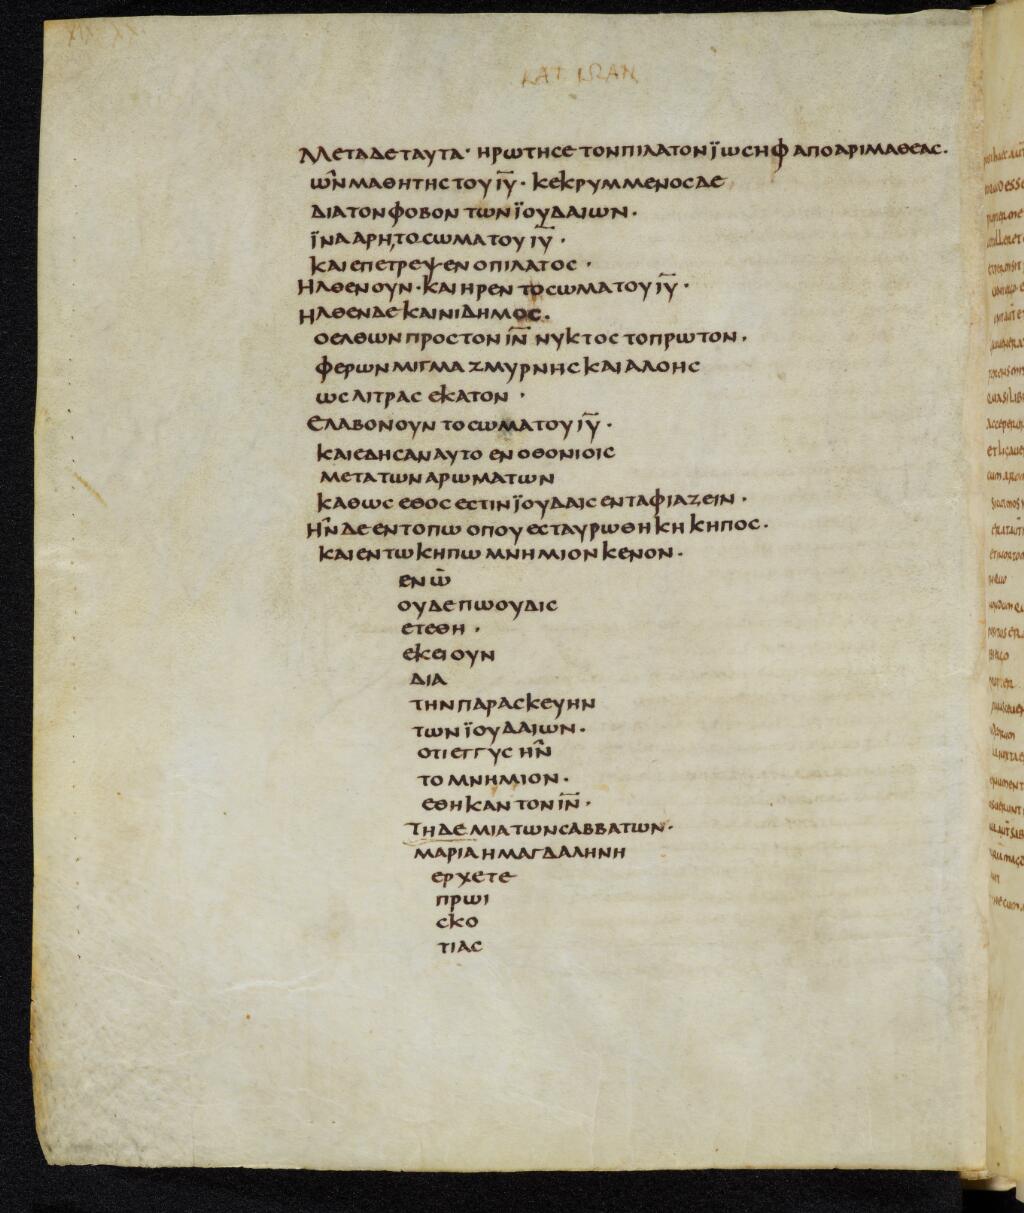 ΚΑΤ ΙΩΑΝ
ΜΕΤΑΔΕΤΑΥΤΑ· ΗΡΩΤΗϹΕ ΤΟΝΠΙΛΑΤΟΝ ΪΩϹΗΦ ΑΠΟΑΡΙΜΑΘΕΑϹ.
ΩΝ ΜΑΘΗΤΗϹ ΤΟΥ ΙΥ̅· ΚΕΚΡΥΜΜΕΝΟϹ ΔΕ
ΔΙΑ ΤΟΝ ΦΟΒΟΝ ΤΩΝ ΪΟΥΔΑΙΩΝ·
ΪΝΑ ΑΡΗ ΤΟ ϹΩΜΑ ΤΟΥ ΙΥ̅·
ΚΑΙ ΕΠΕΤΡΕΨΕΝ Ο ΠΙΛΑΤΟϹ·
ΗΛΘΕΝ ΟΥΝ· ΚΑΙ ΗΡΕΝ ΤΟ ϹΩΜΑ ΤΟΥ ΙΥ̅·
ΗΛΘΕΝ ΔΕ ΚΑΙ ΝΙΔΗΜΟϹ·
Ο ΕΛΘΩΝ ΠΡΟϹ ΤΟΝ ΙΝ̅ ΝΥΚΤΟϹ ΤΟ ΠΡΩΤΟΝ.
ΦΕΡΩΝ ΜΙΓΜΑ ΖΜΥΡΝΗϹ ΚΑΙ ΑΛΟΗϹ
ΩϹ ΛΙΤΡΑϹ ΕΚΑΤΟΝ·
ΕΛΑΒΟΝ ΟΥΝ ΤΟ ϹΩΜΑ ΤΟΥ ΙΥ̅·
ΚΑΙ ΕΔΗϹΑΝ ΑΥΤΟ ΕΝ ΟΘΟΝΙΟΙϹ
ΜΕΤΑ ΤΩΝ ΑΡΩΜΑΤΩΝ
ΚΑΘΩϹ ΕΘΟϹ ΕϹΤΙΝ ΪΟΥΔΑΙϹ ΕΝΤΑΦΙΑΖΕΙΝ·
ΗΝ ΔΕ ΕΝ ΤΟΠΩ ΟΠΟΥ ΕϹΤΑΥΡΩΘΗ ΚΗ ΚΗΠΟϹ·
ΚΑΙ ΕΝ ΤΩ ΚΗΠΩ ΜΝΗΜΙΟΝ ΚΕΝΟΝ·
ΕΝ Ω
ΟΥΔΕΠΩ ΟΥΔΙϹ
ΕΤΕΘΗ·
ΕΚΕΙ ΟΥΝ
ΔΙΑ
ΤΗΝ ΠΑΡΑϹΚΕΥΗΝ
ΤΩΝ ΪΟΥΔΑΙΩΝ·
ΟΤΙ ΕΓΓΥϹ ΗΝ
ΤΟ ΜΝΗΜΙΟΝ·
ΕΘΗΚΑΝ ΤΟΝ ΙΝ̅·
ΤΗ ΔΕ ΜΙΑ ΤΩΝ ϹΑΒΒΑΤΩΝ·
ΜΑΡΙΑ Η ΜΑΓΔΑΛΗΝΗ
ΕΡΧΕΤΕ
ΠΡΩΙ
ϹΚΟ
ΤΙΑϹ